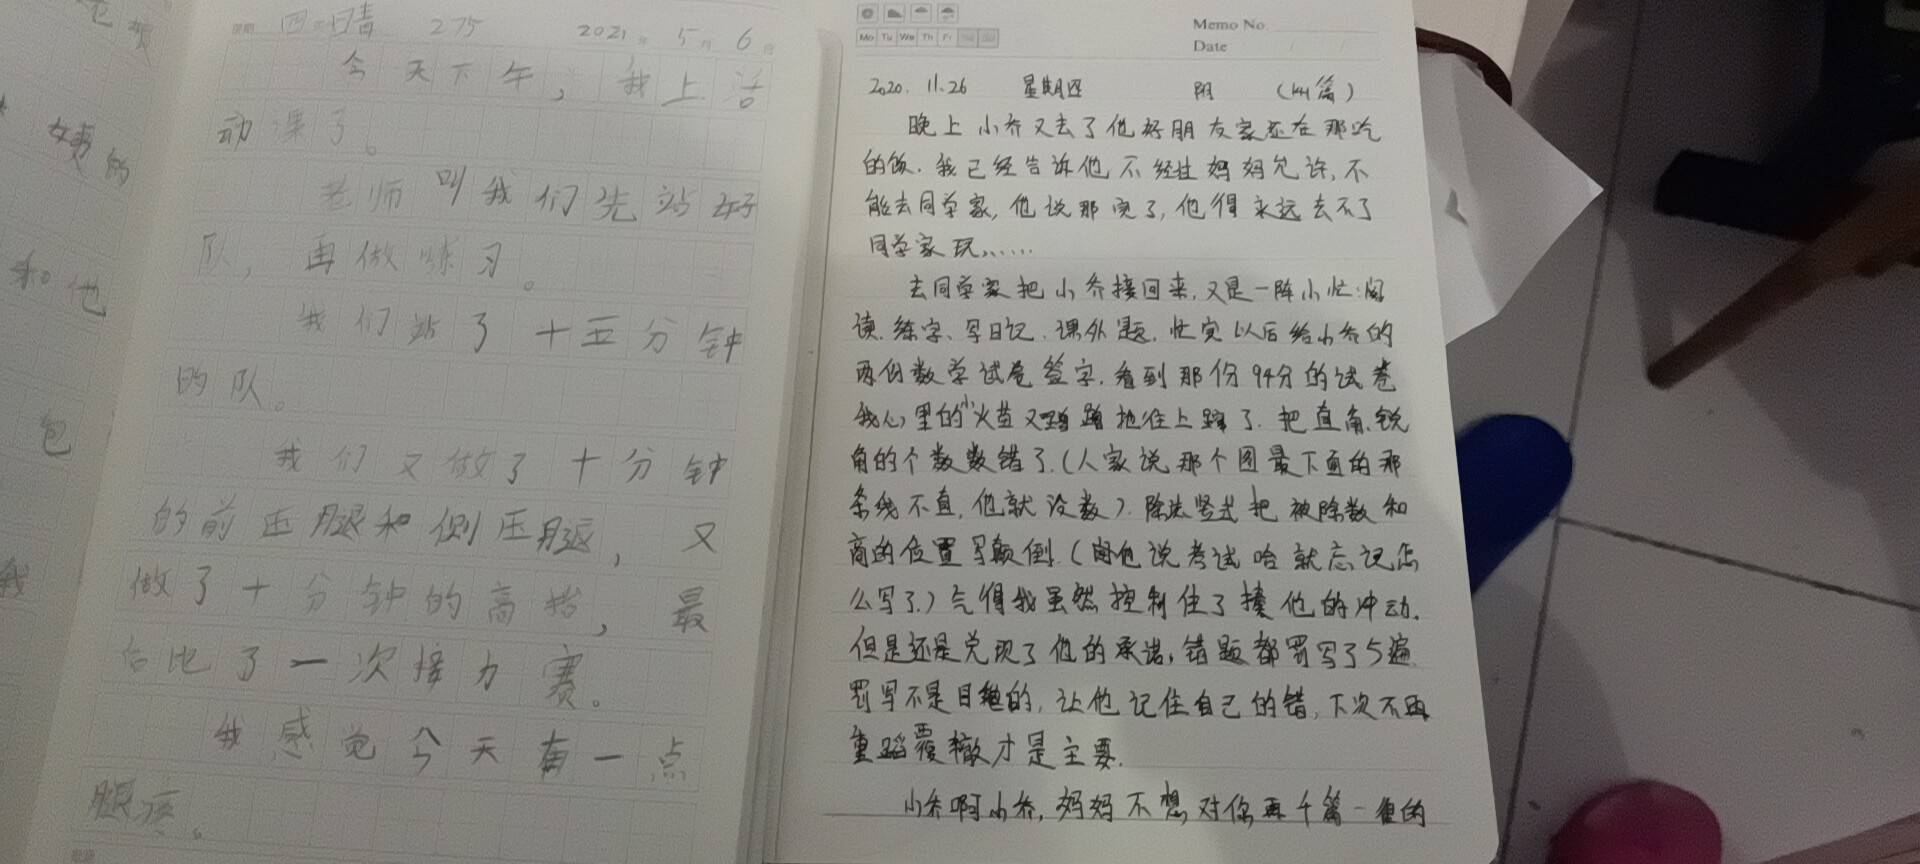 四 晴 275 2021年 5月 6日
今天下午，我上活
动课了。
老师叫我们先站好
队，再做练习。
我们站了十五分钟
的队。
我们又做了十分钟
的前压腿和侧压腿，又
做了十分钟的高抬，最
后比了一次接力赛。
我感觉今天有一点
腿疼。
和他
包
我
Memo No.
Mo Tu We Th Fr
Date
2020. 11.26 星期四 阴 (141篇)
晚上小乔又去了他好朋友家还在那吃
的饭.我已经告诉他不经过妈妈允许,不
能去同学家,他说那完了,他得永远去不了
同学家玩......
去同学家把小乔接回来,又是一阵小忙:阅
读.练字、写日记.课外题.忙完以后给小乔的
两份数学试卷签字.看到那份94分的试卷
我心里的小火苗又蹭蹭地往上蹿了.把直角.锐
角的个数数错了.(人家说那个图最下面的那
条线不直,他就没数).除法竖式把被除数和
商的位置写颠倒.(他说考试哈就忘记怎
么写了.)气得我虽然控制住了揍他的冲动.
但是还是兑现了他的承诺,错题都罚写了5遍.
罚写不是目的,让他记住自己的错,下次不再
重蹈覆辙才是主要.
小乔啊小乔,妈妈不想对你再千篇一律的